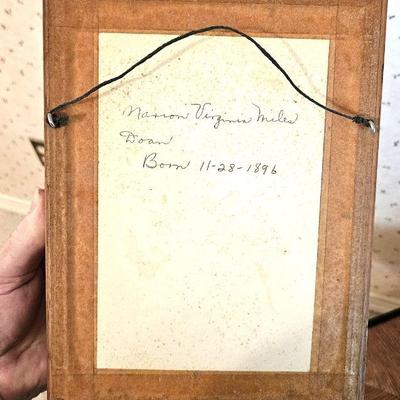 Marion Virginia Miles
Doan
Born 11-28-1896